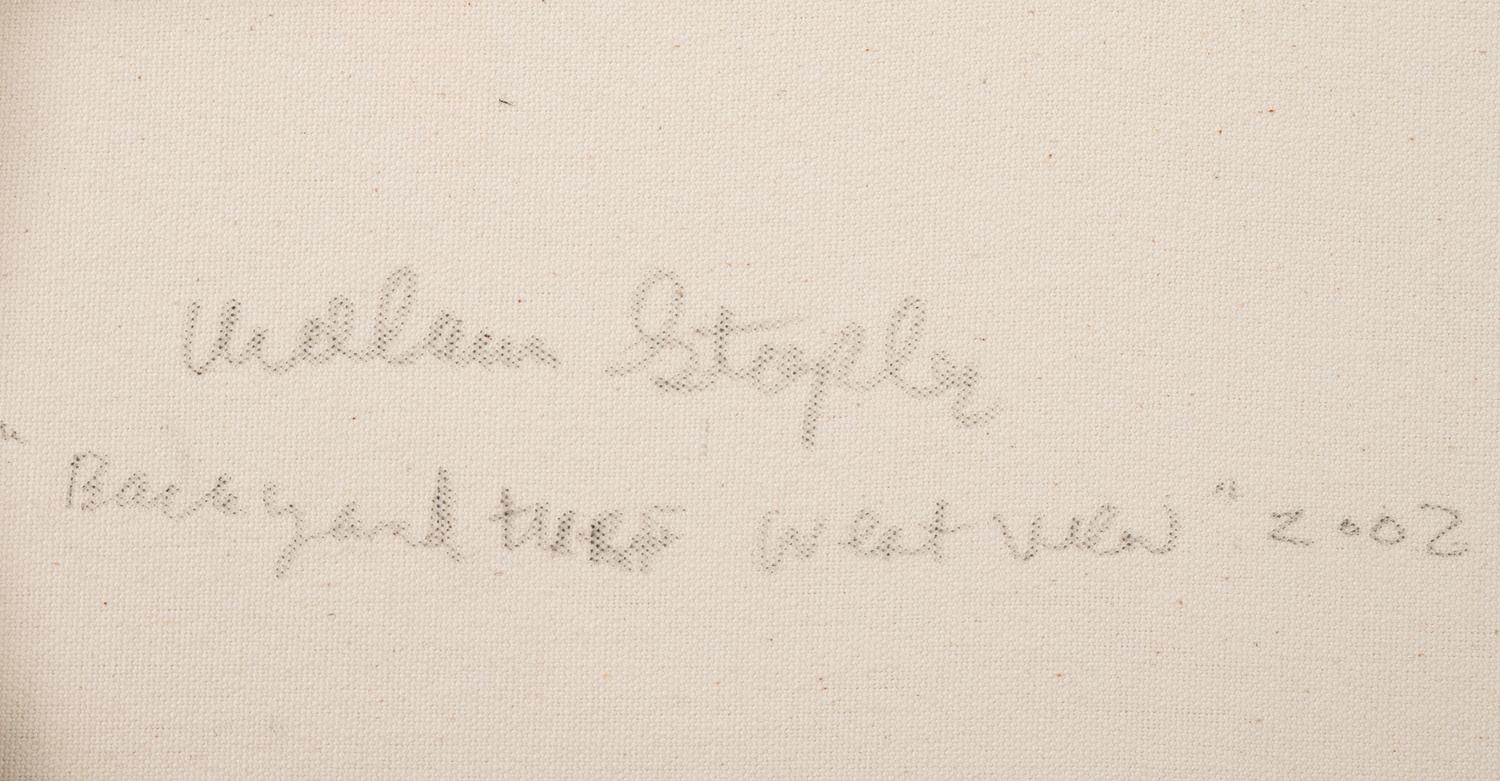 William Stapler
"Backyard trees West View" 2002